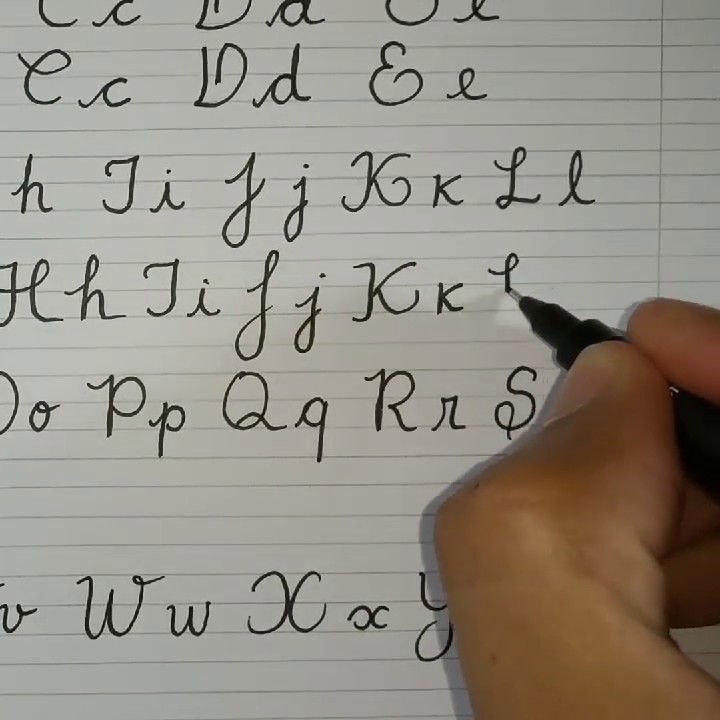 Cc Dd Ee
Cc Dd Ee
h Ii Jj Kk Ll
Hh Ii Jj Kk
o Pp Qq Rr S
v Ww Xx Y